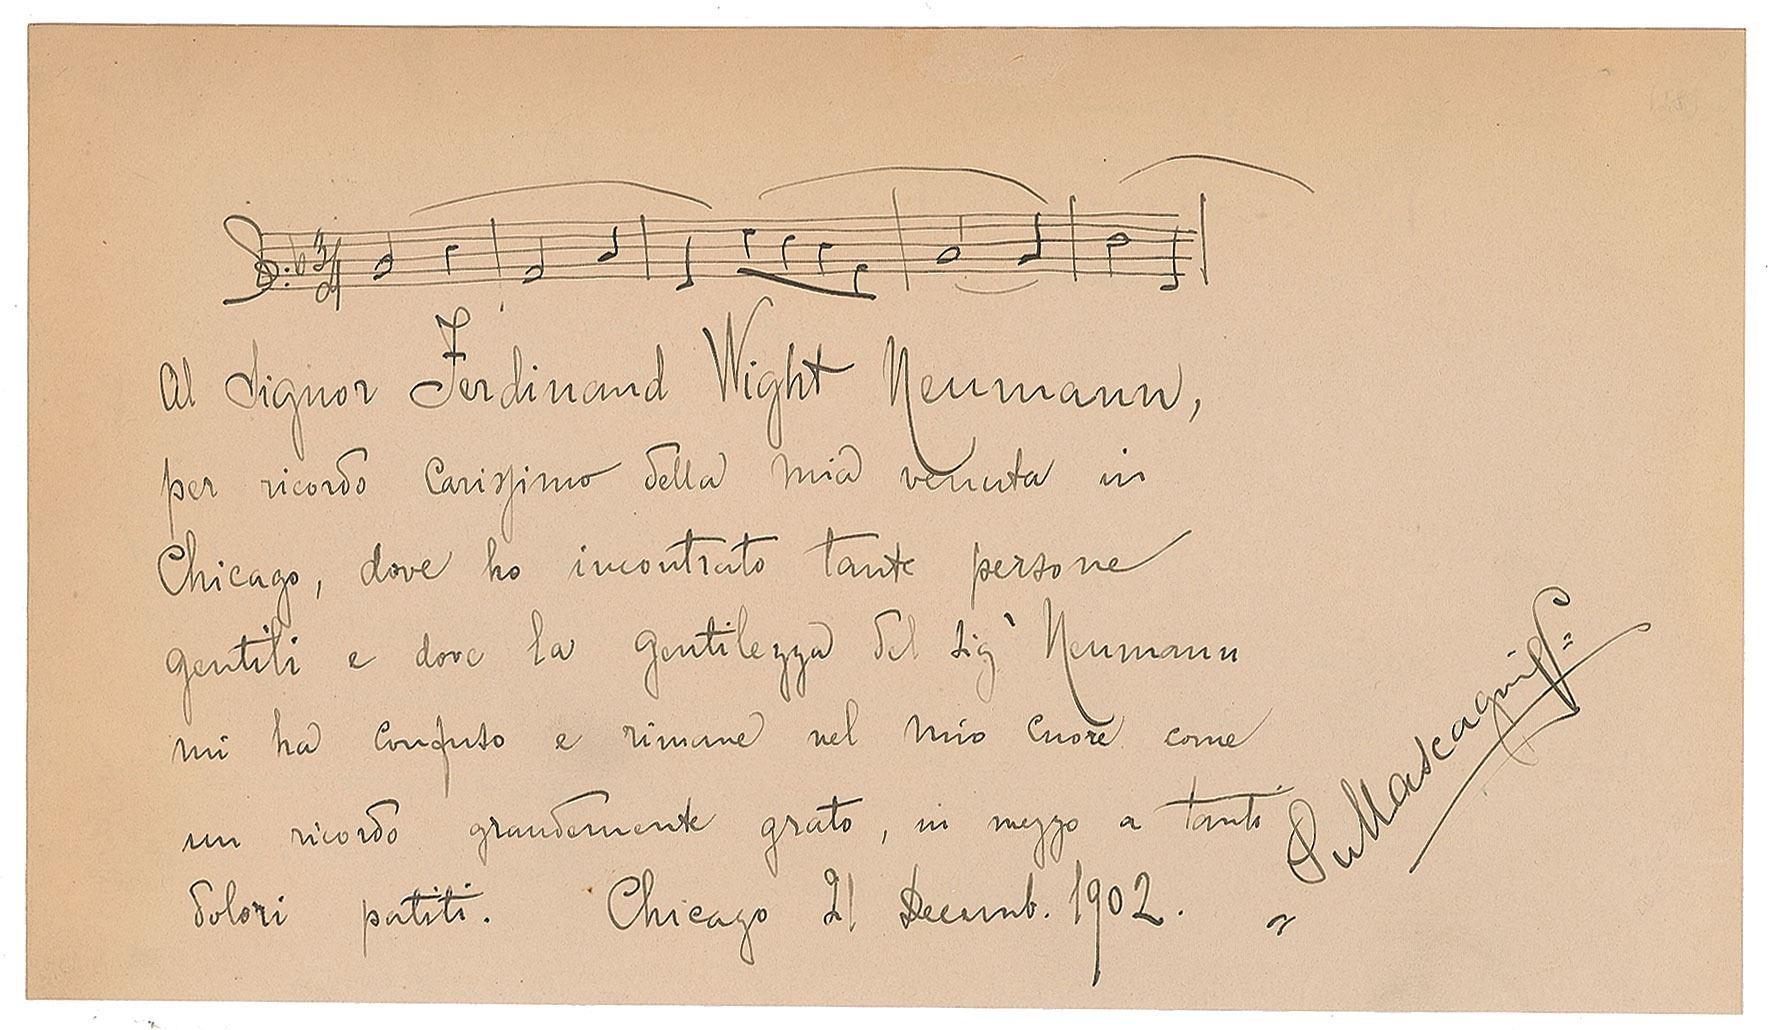 Al Signor Ferdinand Wight Neumann,
per ricordo carissimo della mia venuta in
Chicago, dove ho incontrato tante persone
gentili e dove la gentilezza del Sigʳ Neumann
mi ha confuso e rimane nel mio cuore come
un ricordo grandemente grato, in mezzo a tanti
dolori patiti. Chicago 21 Decemb. 1902.
PMascagni